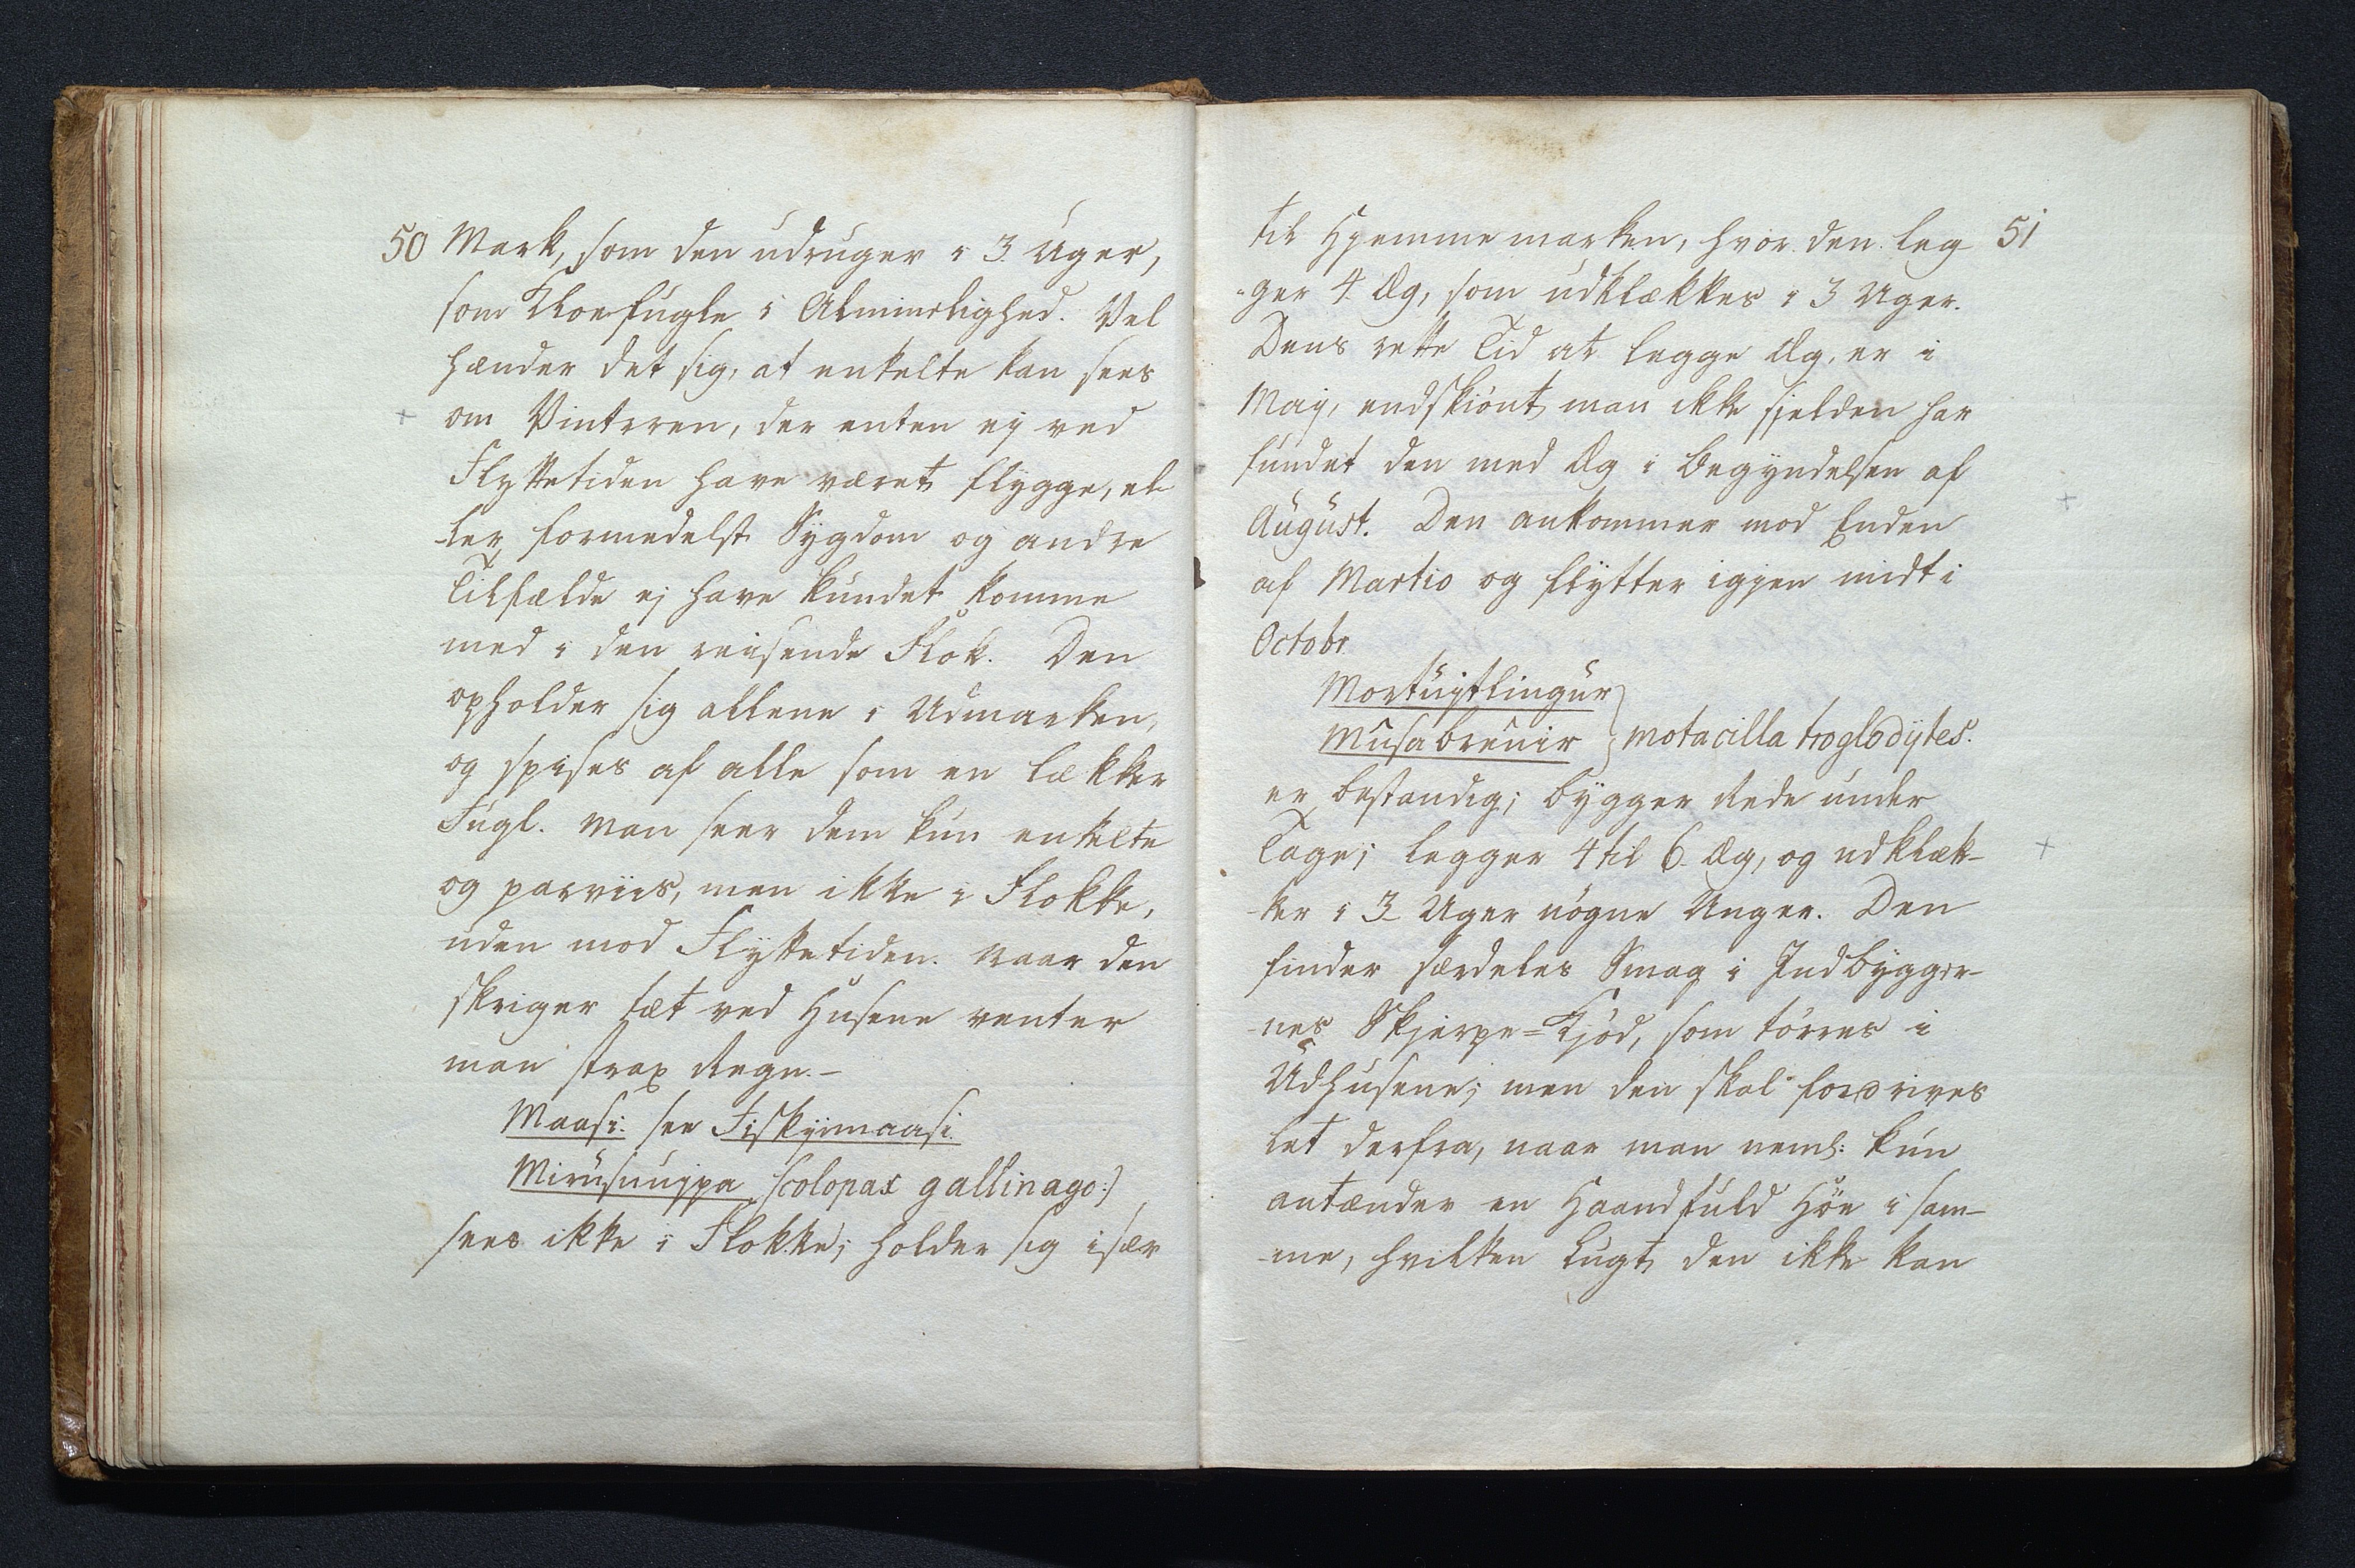 50 Mark, som den udruger i 3 Uger,
som Kloefugle i Alminlighed. Vel
hænder det sig, at enkelte kan sees
+ om Vinteren, der enten ej ved
Flyttetiden have været flygge, el
-ler formedelst Sygdom og andre
Tilfælde ej have kundet komme
med i den reisende Flok. Den
opholder sig allene i Udmarken,
og spises af alle som en lækker
Fugl. Man seer dem kun enkelte
og parviis, men ikke i Flokke,
uden mod Flyttetiden. Naar den
skriger tæt ved Husene venter
man strax Regn.-
Maasi. see Fiskjimaasi.
Mirusnujpa scolopax gallinago:/
sees ikke i Flokke; holder sig især
til Hjemmemarken, hvor den leg 51
-ger 4 Æg, som udklækkes i 3 Uger.
Dens rette Tid at legge Æg, er i
Maj, endskiønt man ikke sjelden har
fundet den med Æg i Begyndelsen af
August. Den ankommer mod Enden +
af Martio og flytter igjen midt i
Octobr.
Mortujtlingur
Musabrenir } motacilla troglodÿtes.
er bestandig; bygger Rede under
Tage; legger 4 til 6 Æg, og udklæk- +
-ker i 3 Uger nøgne Unger. Den
finder særdeles Smag i Indbygger-
-nes Skjerpe=Kjød, som tørres i
Udhusene; men den skal fordrives
let derfra, naar man neml: kun
antænder en Haandfuld Høe i sam-
-me, hvilken Lugt den ikke kan